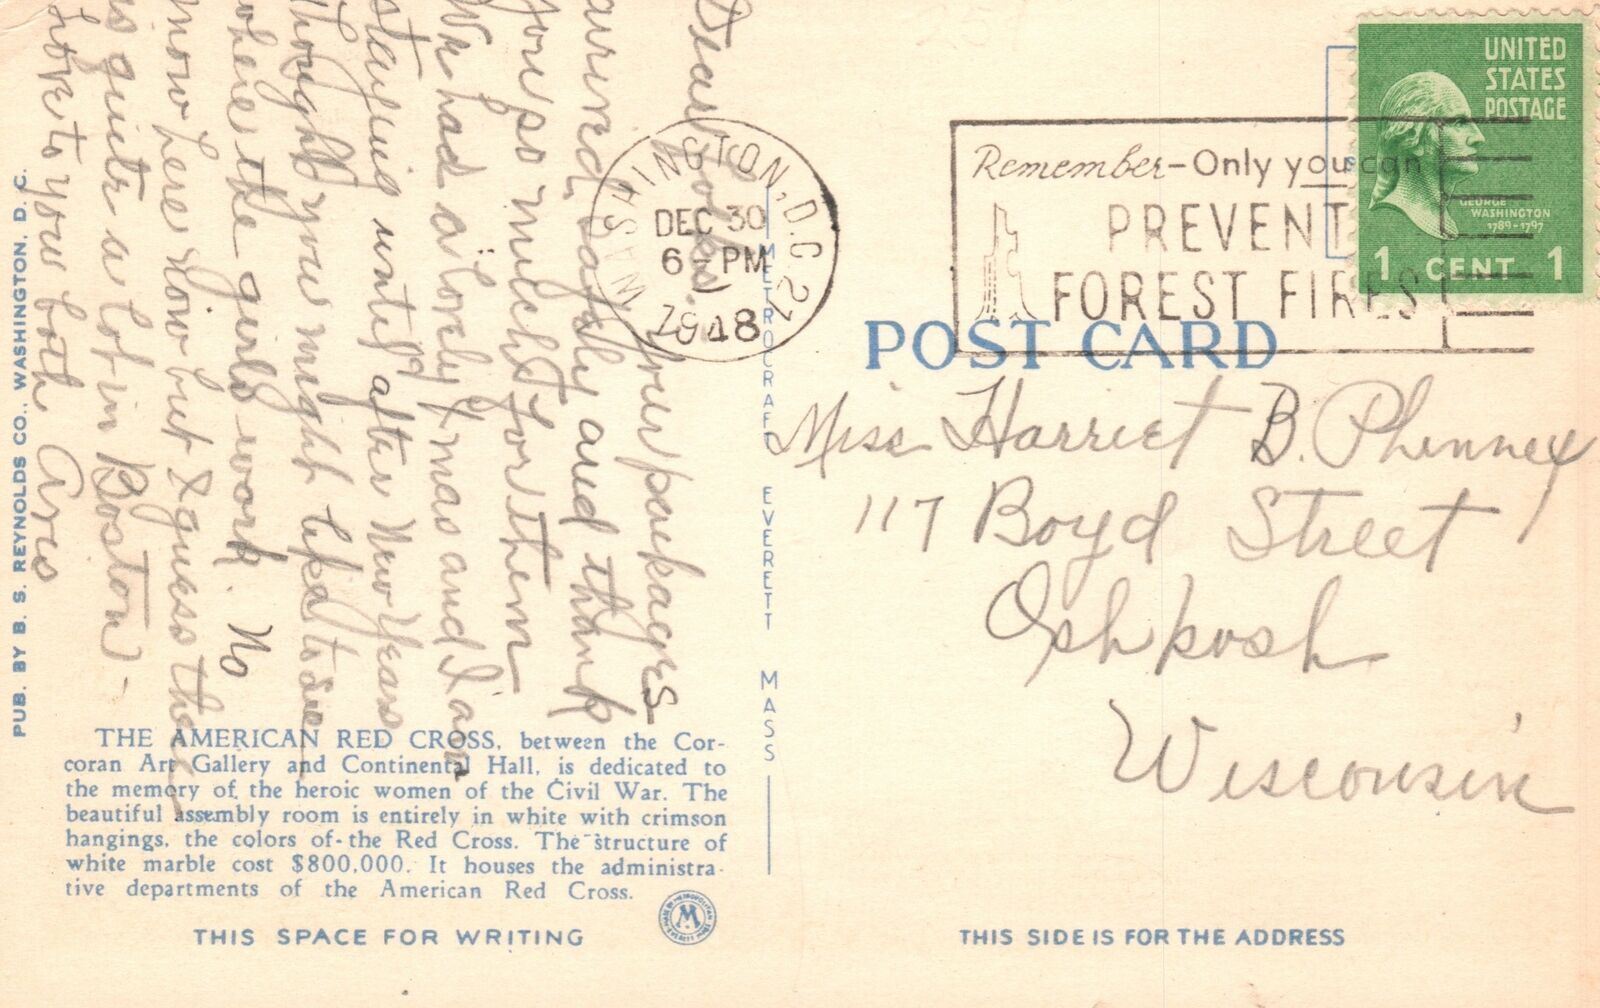 Dear Folks.
Your packages
arrived safely and thank
you so much for them
We had a lovely Xmas and I am
staying until after New Years
Thought you might like to see
where the girls work. No
snow here now but I guess there
is quite a lot in Boston -
Love to you both
WASHINGTON, D.C. 27
DEC 30
6 - PM
1948
Remember - Only you can
PREVENT
FOREST FIRES
UNITED
STATES
POSTAGE
GEORGE
WASHINGTON
1789-1797
1 CENT 1
POST CARD
Miss Harriet B. Phinney
117 Boyd Street
Oshkosh
Wisconsin
PUB. BY B. S. REYNOLDS CO., WASHINGTON, D. C.
METROCRAFT EVERETT MASS
THE AMERICAN RED CROSS, between the Cor-
coran Art Gallery and Continental Hall, is dedicated to
the memory of the heroic women of the Civil War. The
beautiful assembly room is entirely in white with crimson
hangings, the colors of the Red Cross. The structure of
white marble cost $800,000. It houses the administra-
tive departments of the American Red Cross.
M
THIS SPACE FOR WRITING
THIS SIDE IS FOR THE ADDRESS